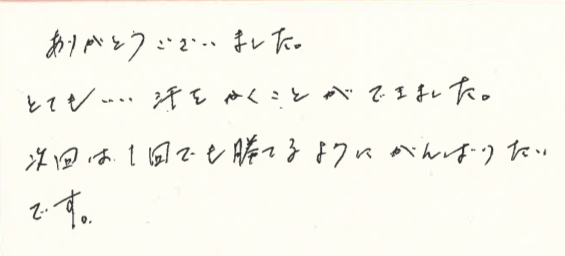 ありがとうございました。
とてもいい汗をかくことができました。
次回は1回でも勝てるようにがんばりたい
です。